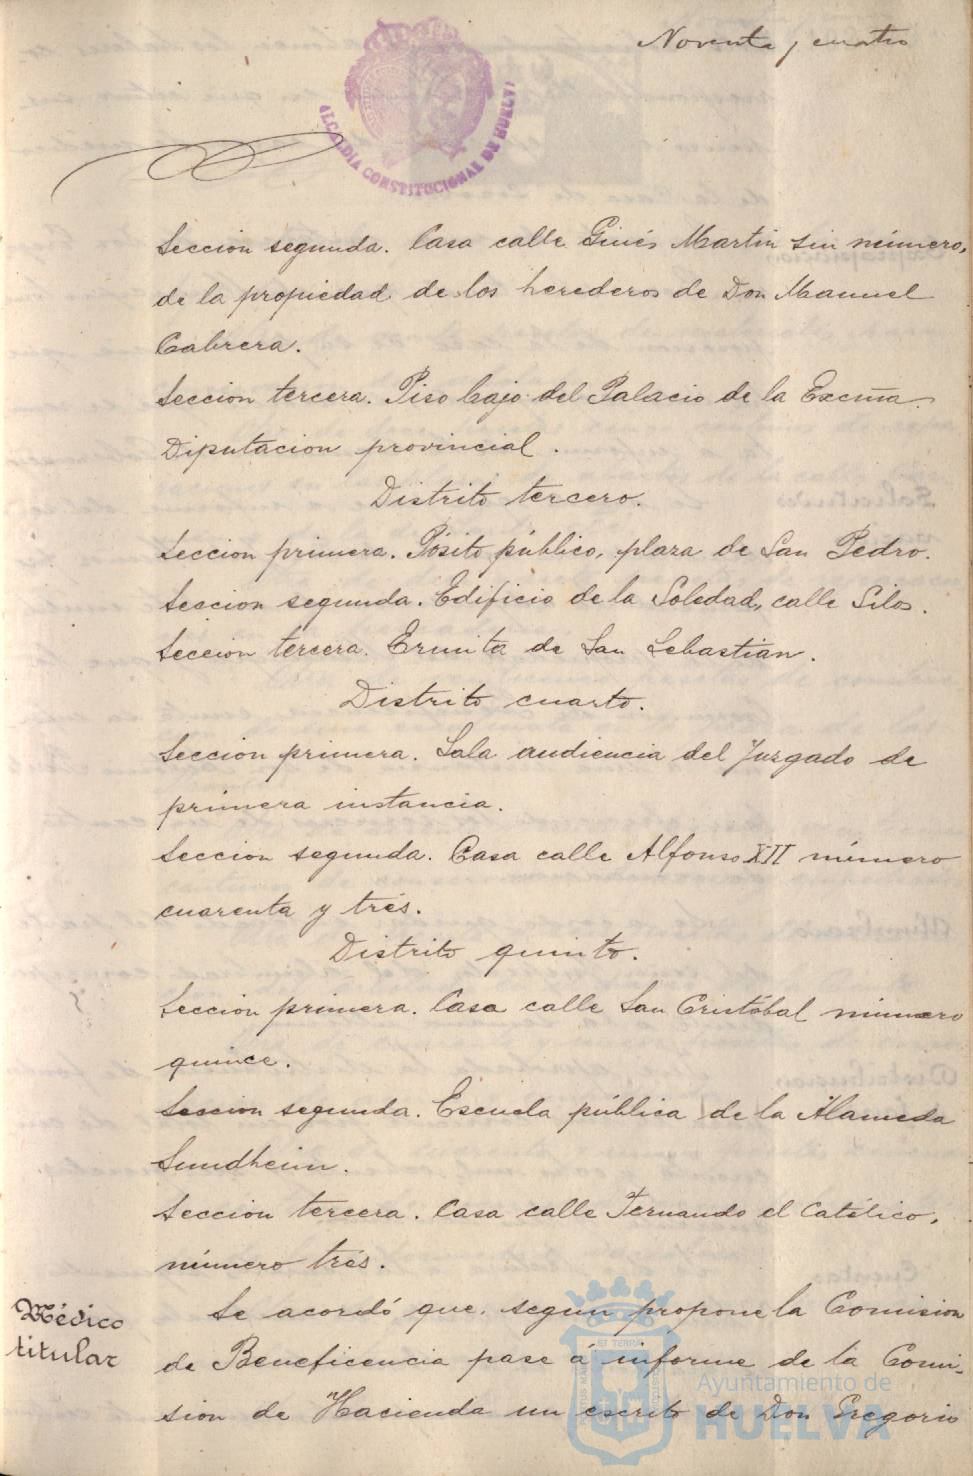 Noventa y cuatro
ALCALDIA CONSTITUCIONAL DE HUELVA
Seccion segunda. Casa calle Ginés Martin sin número,
de la propiedad de los herederos de Don Manuel
Cabrera.
Seccion tercera. Piso bajo del Palacio de la Excma.
Diputacion provincial.
Distrito tercero.
Seccion primera. Pósito público, plaza de San Pedro.
Seccion segunda. Edificio de la Soledad, calle Silos.
Seccion tercera. Ermita de San Sebastián.
Distrito cuarto.
Seccion primera. Sala audiencia del Juzgado de
primera instancia.
Seccion segunda. Casa calle Alfonso XII número
cuarenta y trés.
Distrito quinto.
Seccion primera. Casa calle San Cristóbal número
quince.
Seccion segunda. Escuela pública de la Alameda
Sundheim.
Seccion tercera. Casa calle Fernando el Católico,
número trés.
Médico
titular
Se acordó que, segun propone la Comision
de Beneficencia pase á informe de la Comi-
sion de Hacienda un escrito de Don Gregorio
Ayuntamiento de
HUELVA